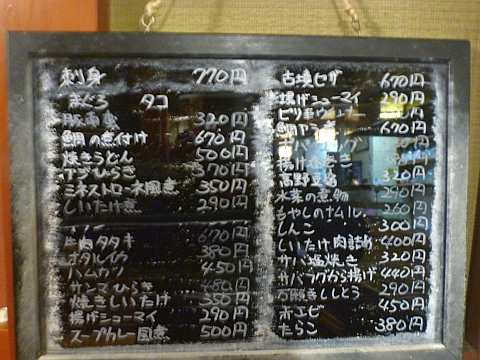 刺身 770円
まぐろ タコ
豚角煮 320円
鯛の煮付け 670円
焼きうどん 500円
アジひらき 370円
ミネストローネ風煮 350円
しいたけ煮 290円
670円
牛肉タタキ 380円
ホタルイカ
ハムカツ 450円
サンマひらき 480円
焼きしいたけ 350円
揚げシューマイ 290円
スープカレー風煮 500円
古墳ピザ 670円
揚げシューマイ 290円
ピリ辛
鯛 670円
揚げ春巻き
高野豆腐 320円
水菜の煮物 290円
もやしのナムル 260円
しんこ 300円
しいたけ肉詰め 400円
サバ塩焼き 320円
サバラグから揚げ 440円
万願寺ししとう 290円
赤エビ 450円
たらこ 380円